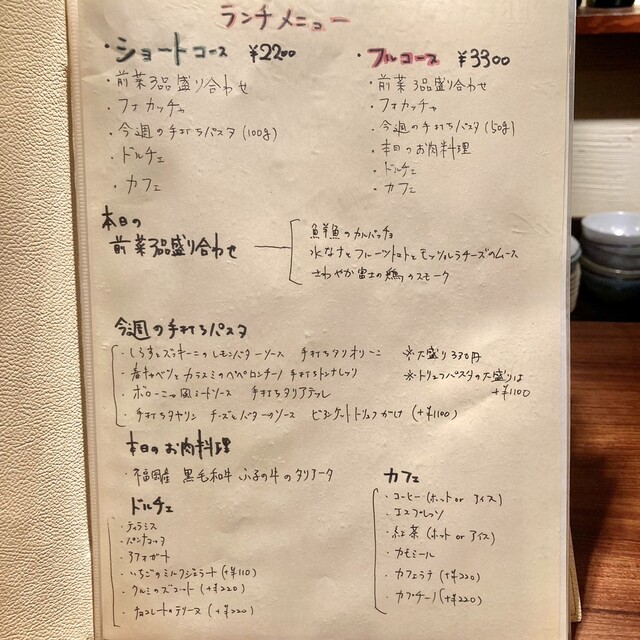 ランチメニュー
・ショートコース ¥2200
・前菜3品盛り合わせ
・フォカッチャ
・今週の手打ちパスタ(100g)
・ドルチェ
・カフェ
・フルコース ¥3300
・前菜3品盛り合わせ
・フォカッチャ
・今週の手打ちパスタ(50g)
・本日のお肉料理
・ドルチェ
・カフェ
本日の
前菜3品盛り合わせ
鮮魚のカルパッチョ
水なすとフルーツトマトとモッツァレラチーズのムース
さわやか富士の鶏のスモーク
今週の手打ちパスタ
・しらすとズッキーニのレモンバターソース 手打ちタリオリーニ
・春キャベツとカラスミのペペロンチーノ 手打ちトンナレッリ
・ボローニャ風ミートソース 手打ちタリアテッレ
・手打ちタヤリン チーズとバターのソース ビアンケットトリュフがけ (+¥1100)
※大盛り330円
※トリュフパスタの大盛りは
+¥1100
本日のお肉料理
・福岡産 黒毛和牛 の牛のタリアータ
ドルチェ
・ティラミス
・パンナコッタ
・アフォガート
・いちごのミルクジェラート(+¥110)
・クルミのズコット(+¥220)
・チョコレートのテリーヌ(+¥220)
カフェ
・コーヒー(ホット or アイス)
・エスプレッソ
・紅茶(ホット or アイス)
・カモミール
・カフェラテ(+¥220)
・カプチーノ(+¥220)